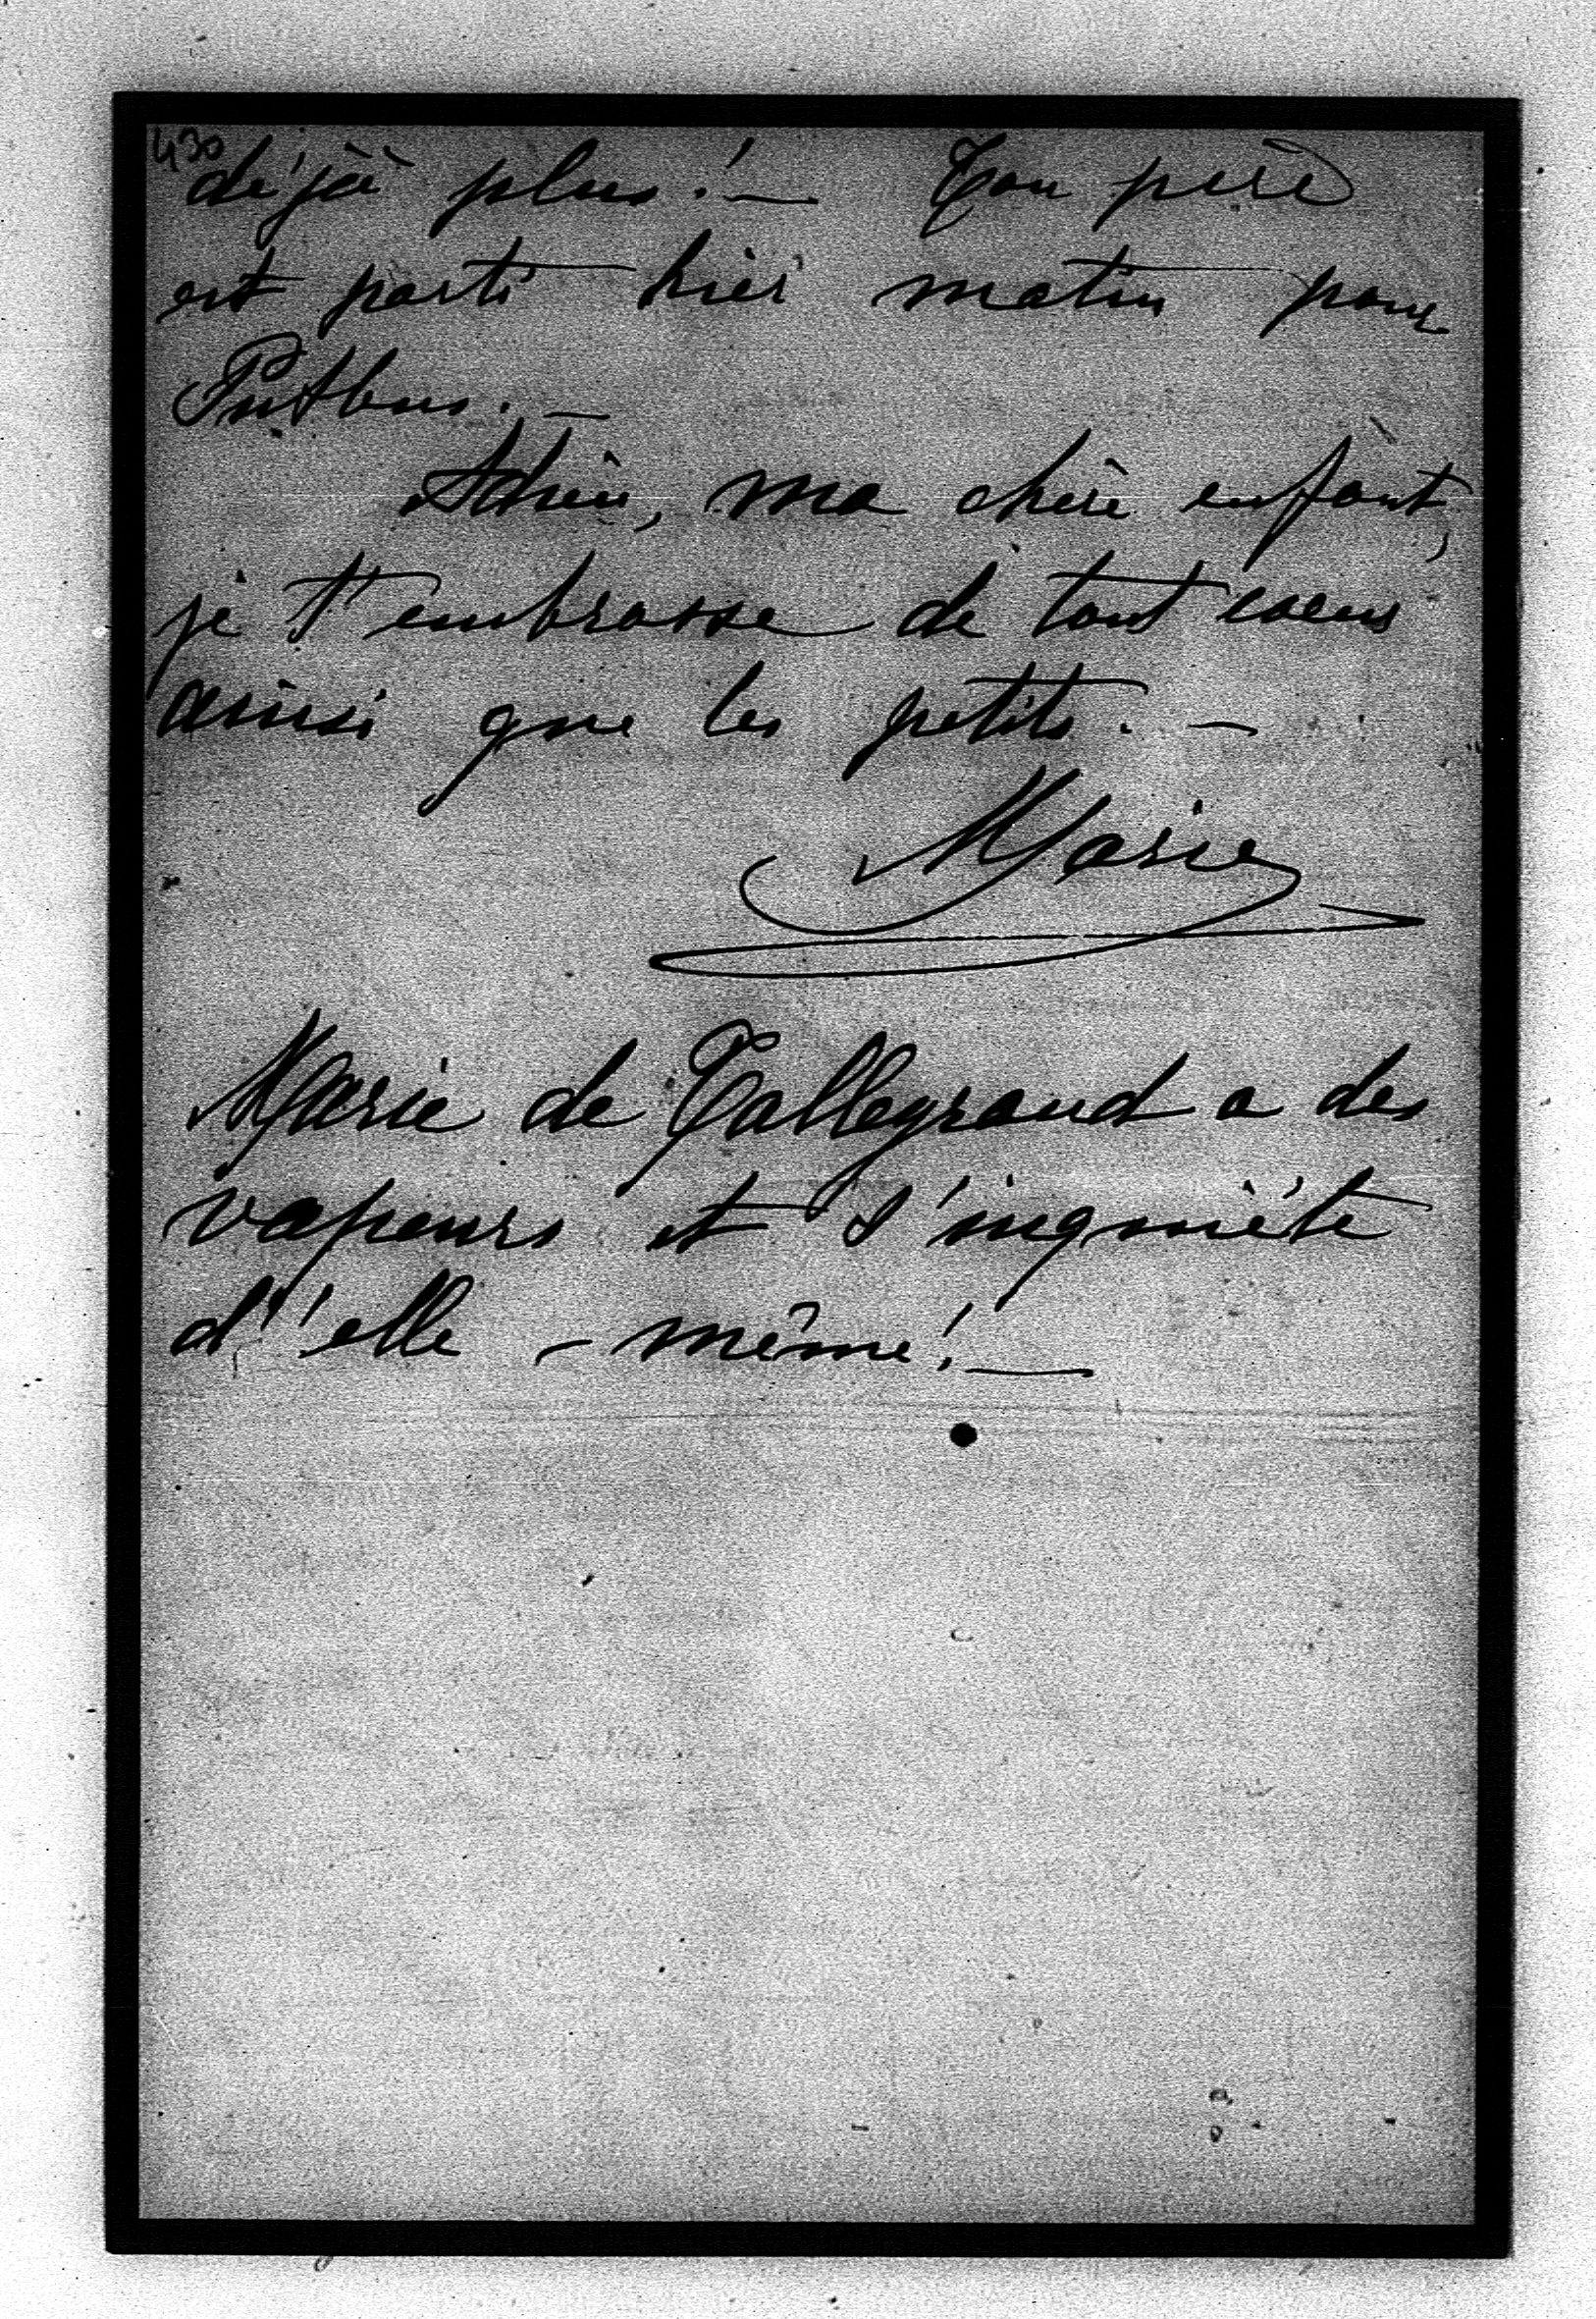 430
déjà plus! — Ton père
est parti hier matin pour
Putbus. —
Adieu, ma chère enfant,
je t'embrasse de tout coeur
ainsi que les petits. —
Marie
Marie de Talleyrand a des
vapeurs et s'inquiète
d'elle-même! —